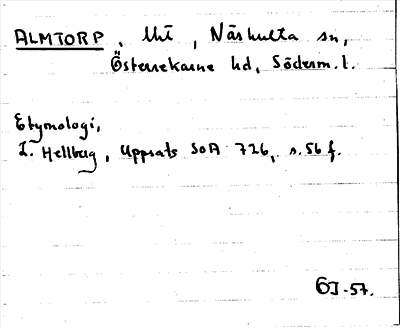 ALMTORP, Uhi, Näshulta sn,
Österrekarne hd, Söderm. l.
Etymologi,
L. Hellberg, Uppsats SOA 726, s. 56 f.
ÖJ-57.